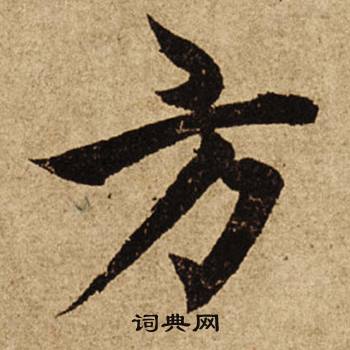 方
词典网